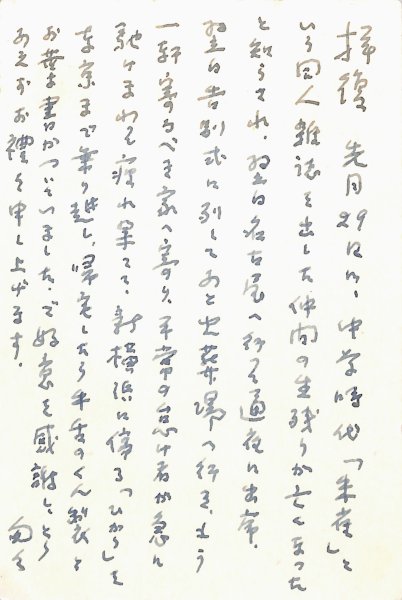 拝復 先月29日に、中学時代「朱雀」と
いう同人雑誌を出した仲間の生残りが亡くなった
と知らされ、翌日名古屋へ行って通夜に出席、
翌日告別式に列してあと火葬場へ行き、もう
一軒寄るべき家へ寄り、平常の怠け者が急に
馳けまわる疲れ果てて、新横浜に停る「ひかり」を
東京まで乗り越し、帰宅したら手古のくん製と
お葉書がついていました。ご好意を感謝しとり
あえずお禮を申し上げます。 匆々